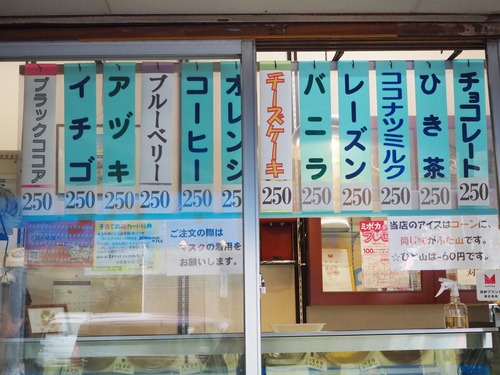 ブラックココア
250
イチゴ
250
アヅキ
250
ブルーベリー
250
コーヒー
250
オレンジ
チーズケーキ
250
バニラ
250
レーズン
250
ココナツミルク
250
ひき茶
250
チョコレート
250
ご注文の際は
マスクの着用を
お願いします。
当店のアイスはコーンに、
同じ味がふた山です。
☆ひと山は-60円です。